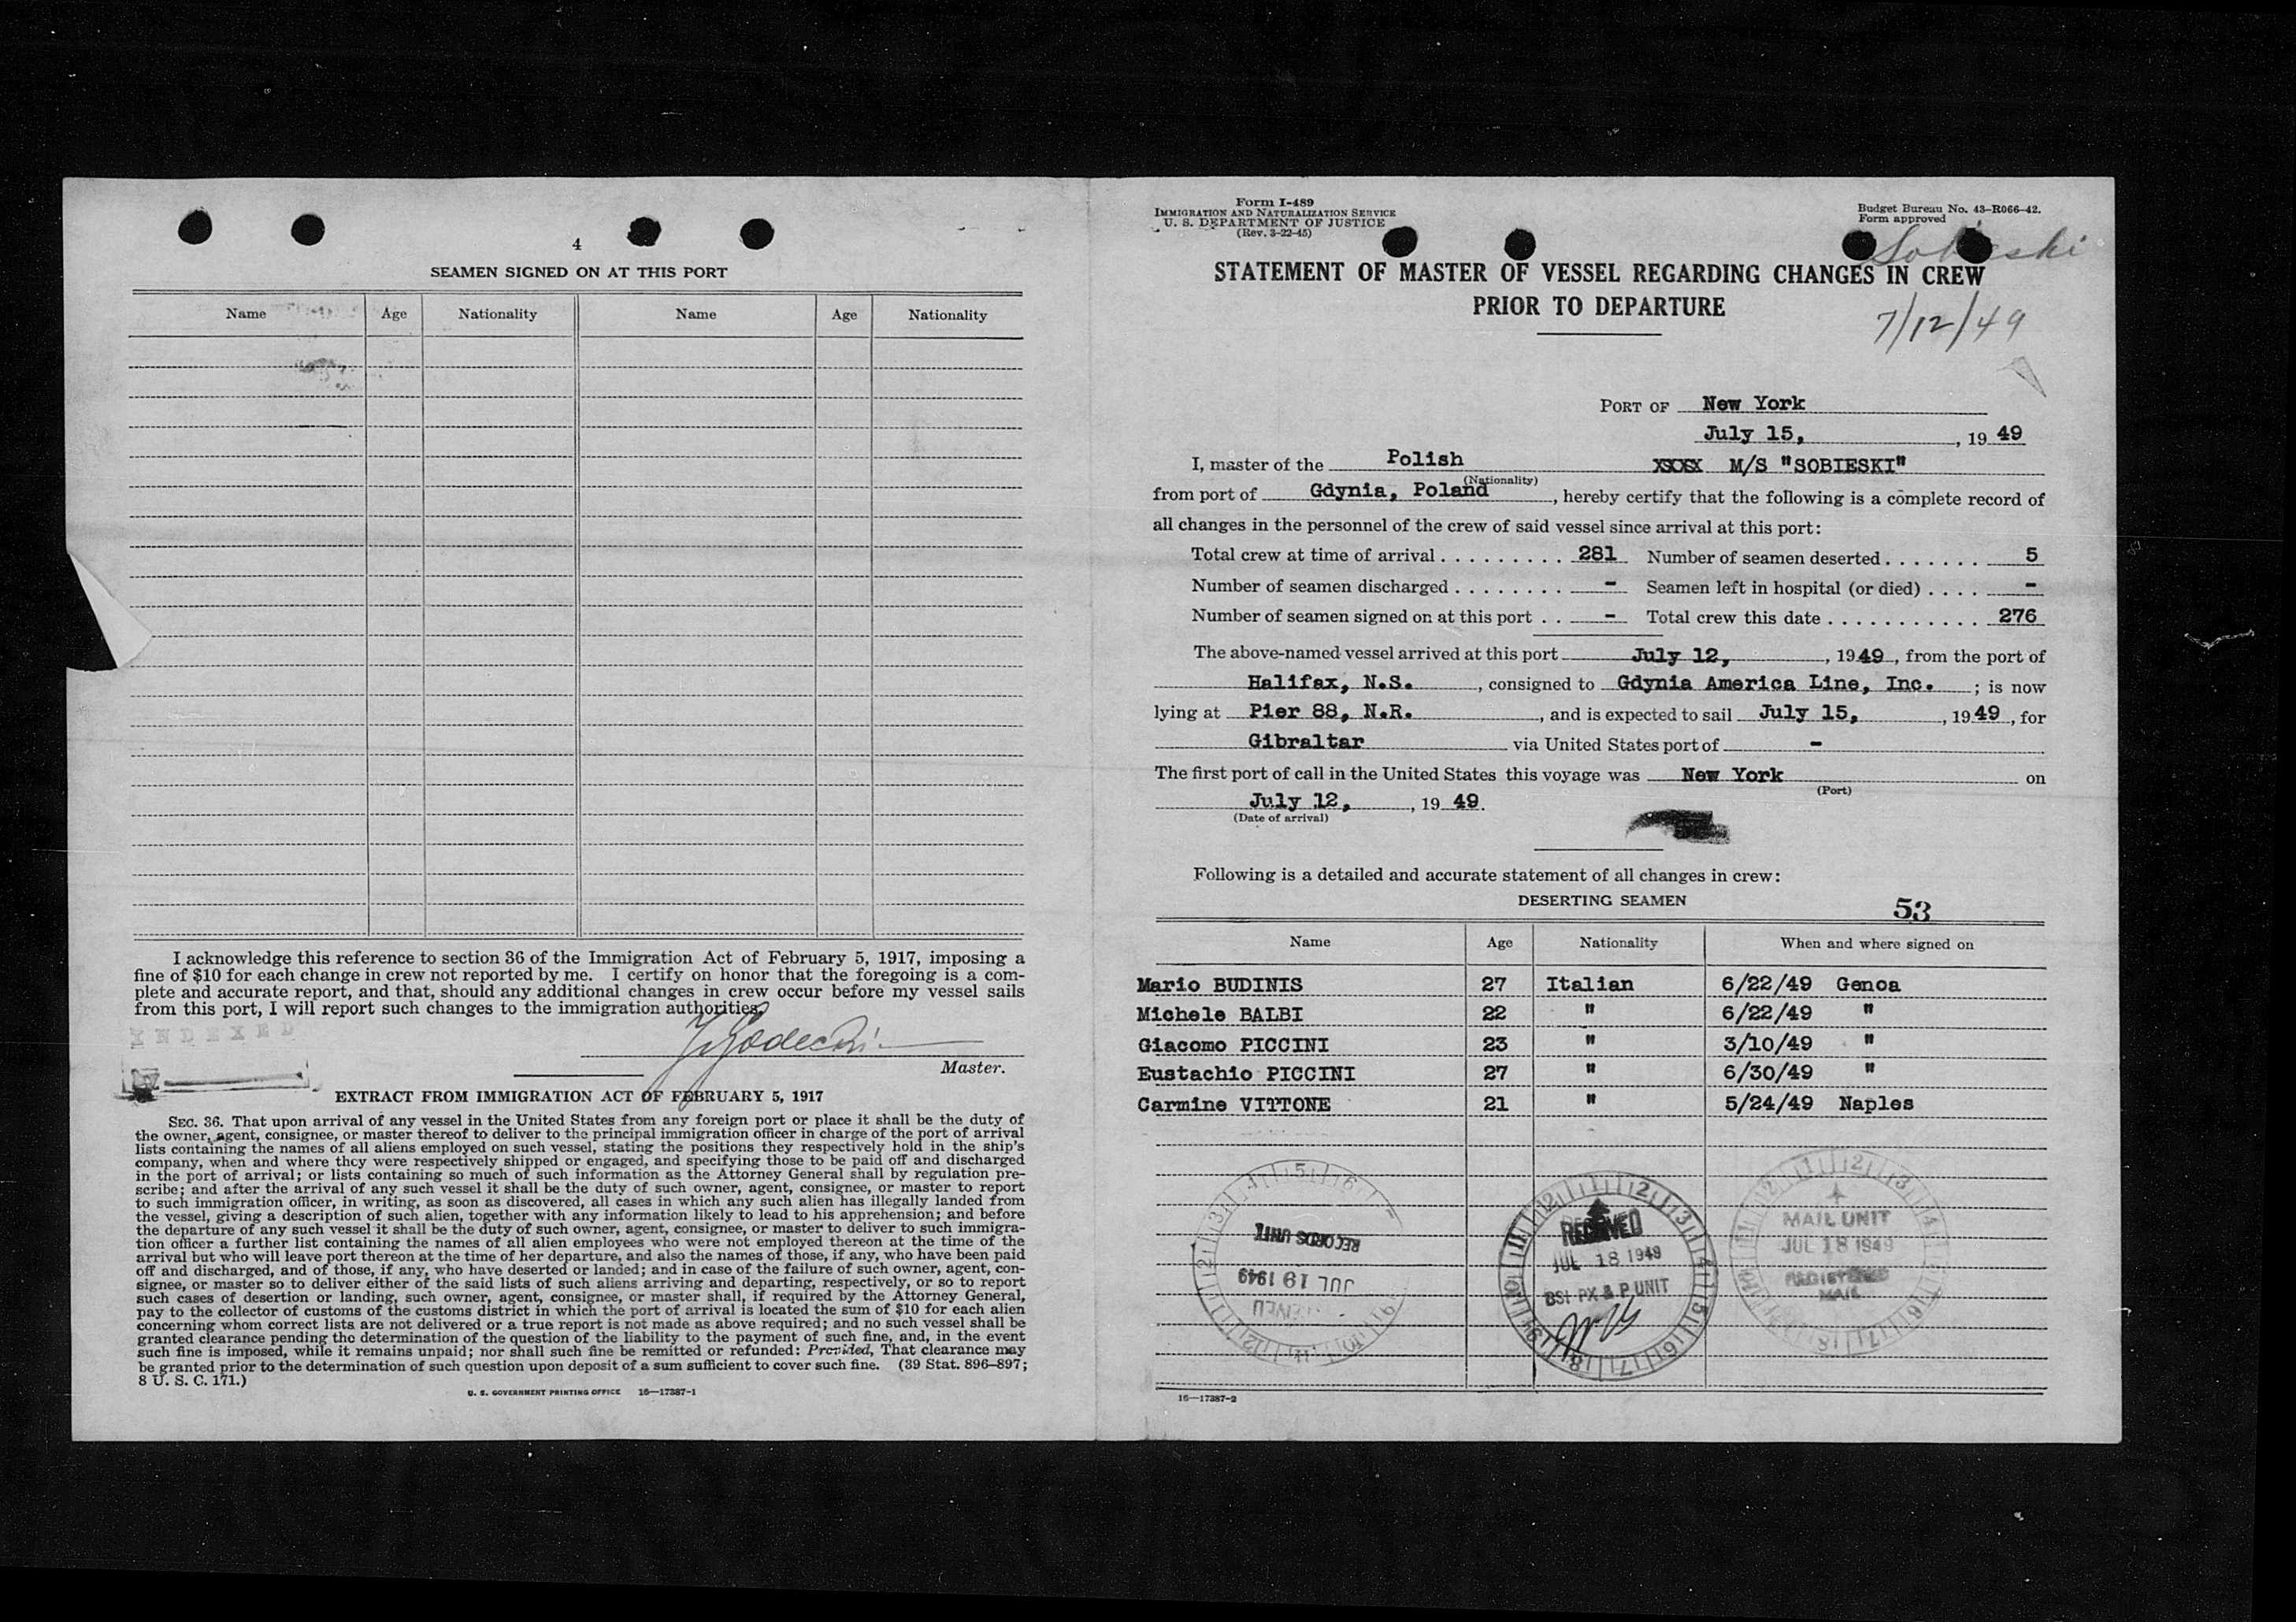 4
SEAMEN SIGNED ON AT THIS PORT
Name Age Nationality Name Age Nationality
I acknowledge this reference to section 36 of the Immigration Act of February 5, 1917, imposing a
fine of $10 for each change in crew not reported by me. I certify on honor that the foregoing is a com-
plete and accurate report, and that, should any additional changes in crew occur before my vessel sails
from this port, I will report such changes to the immigration authorities.
Master.
EXTRACT FROM IMMIGRATION ACT OF FEBRUARY 5, 1917
SEC. 36. That upon arrival of any vessel in the United States from any foreign port or place it shall be the duty of
the owner, agent, consignee, or master thereof to deliver to the principal immigration officer in charge of the port of arrival
lists containing the names of all aliens employed on such vessel, stating the positions they respectively hold in the ship's
company, when and where they were respectively shipped or engaged, and specifying those to be paid off and discharged
in the port of arrival; or lists containing so much of such information as the Attorney General shall by regulation pre-
scribe; and after the arrival of any such vessel it shall be the duty of such owner, agent, consignee, or master to report
to such immigration officer, in writing, as soon as discovered, all cases in which any such alien has illegally landed from
the vessel, giving a description of such alien, together with any information likely to lead to his apprehension; and before
the departure of any such vessel it shall be the duty of such owner, agent, consignee, or master to deliver to such immigra-
tion officer a further list containing the names of all alien employees who were not employed thereon at the time of the
arrival but who will leave port thereon at the time of her departure, and also the names of those, if any, who have been paid
off and discharged, and of those, if any, who have deserted or landed; and in case of the failure of such owner, agent, con-
signee, or master so to deliver either of the said lists of such aliens arriving and departing, respectively, or so to report
such cases of desertion or landing, such owner, agent, consignee, or master shall, if required by the Attorney General,
pay to the collector of customs of the customs district in which the port of arrival is located the sum of $10 for each alien
concerning whom correct lists are not delivered or a true report is not made as above required; and no such vessel shall be
granted clearance pending the determination of the question of the liability to the payment of such fine, and, in the event
such fine is imposed, while it remains unpaid; nor shall such fine be remitted or refunded: Provided, That clearance may
be granted prior to the determination of such question upon deposit of a sum sufficient to cover such fine. (39 Stat. 896–897;
8 U. S. C. 171.)
U. S. GOVERNMENT PRINTING OFFICE 16—17387-1
Form I-489
IMMIGRATION AND NATURALIZATION SERVICE
U. S. DEPARTMENT OF JUSTICE
(Rev. 3-22-45)
Budget Bureau No. 43-R066-42.
Form approved
Sobieski
STATEMENT OF MASTER OF VESSEL REGARDING CHANGES IN CREW
PRIOR TO DEPARTURE
7/12/49
PORT OF New York
July 15, , 19 49
I, master of the Polish XXXX M/S "SOBIESKI"
(Nationality)
from port of Gdynia, Poland , hereby certify that the following is a complete record of
all changes in the personnel of the crew of said vessel since arrival at this port:
Total crew at time of arrival . . . . . . . . . . 281 Number of seamen deserted . . . . . . . 5
Number of seamen discharged . . . . . . . . - Seamen left in hospital (or died) . . . . -
Number of seamen signed on at this port . . - Total crew this date . . . . . . . . . . . 276
The above-named vessel arrived at this port July 12, , 1949 , from the port of
Halifax, N.S. , consigned to Gdynia America Line, Inc. ; is now
lying at Pier 88, N.R. , and is expected to sail July 15, , 1949 , for
Gibraltar via United States port of -
The first port of call in the United States this voyage was New York on
(Port)
July 12, , 19 49.
(Date of arrival)
Following is a detailed and accurate statement of all changes in crew:
DESERTING SEAMEN 53
Name Age Nationality When and where signed on
Mario BUDINIS 27 Italian 6/22/49 Genoa
Michele BALBI 22 " 6/22/49 "
Giacomo PICCINI 23 " 3/10/49 "
Eustachio PICCINI 27 " 6/30/49 "
Carmine VITTONE 21 " 5/24/49 Naples
RECORDS UNIT
JUL 19 1949
RECEIVED
JUL 18 1949
BSI PX & P UNIT
MAIL UNIT
JUL 18 1949
REGISTERED
MAIL
16—17387-2